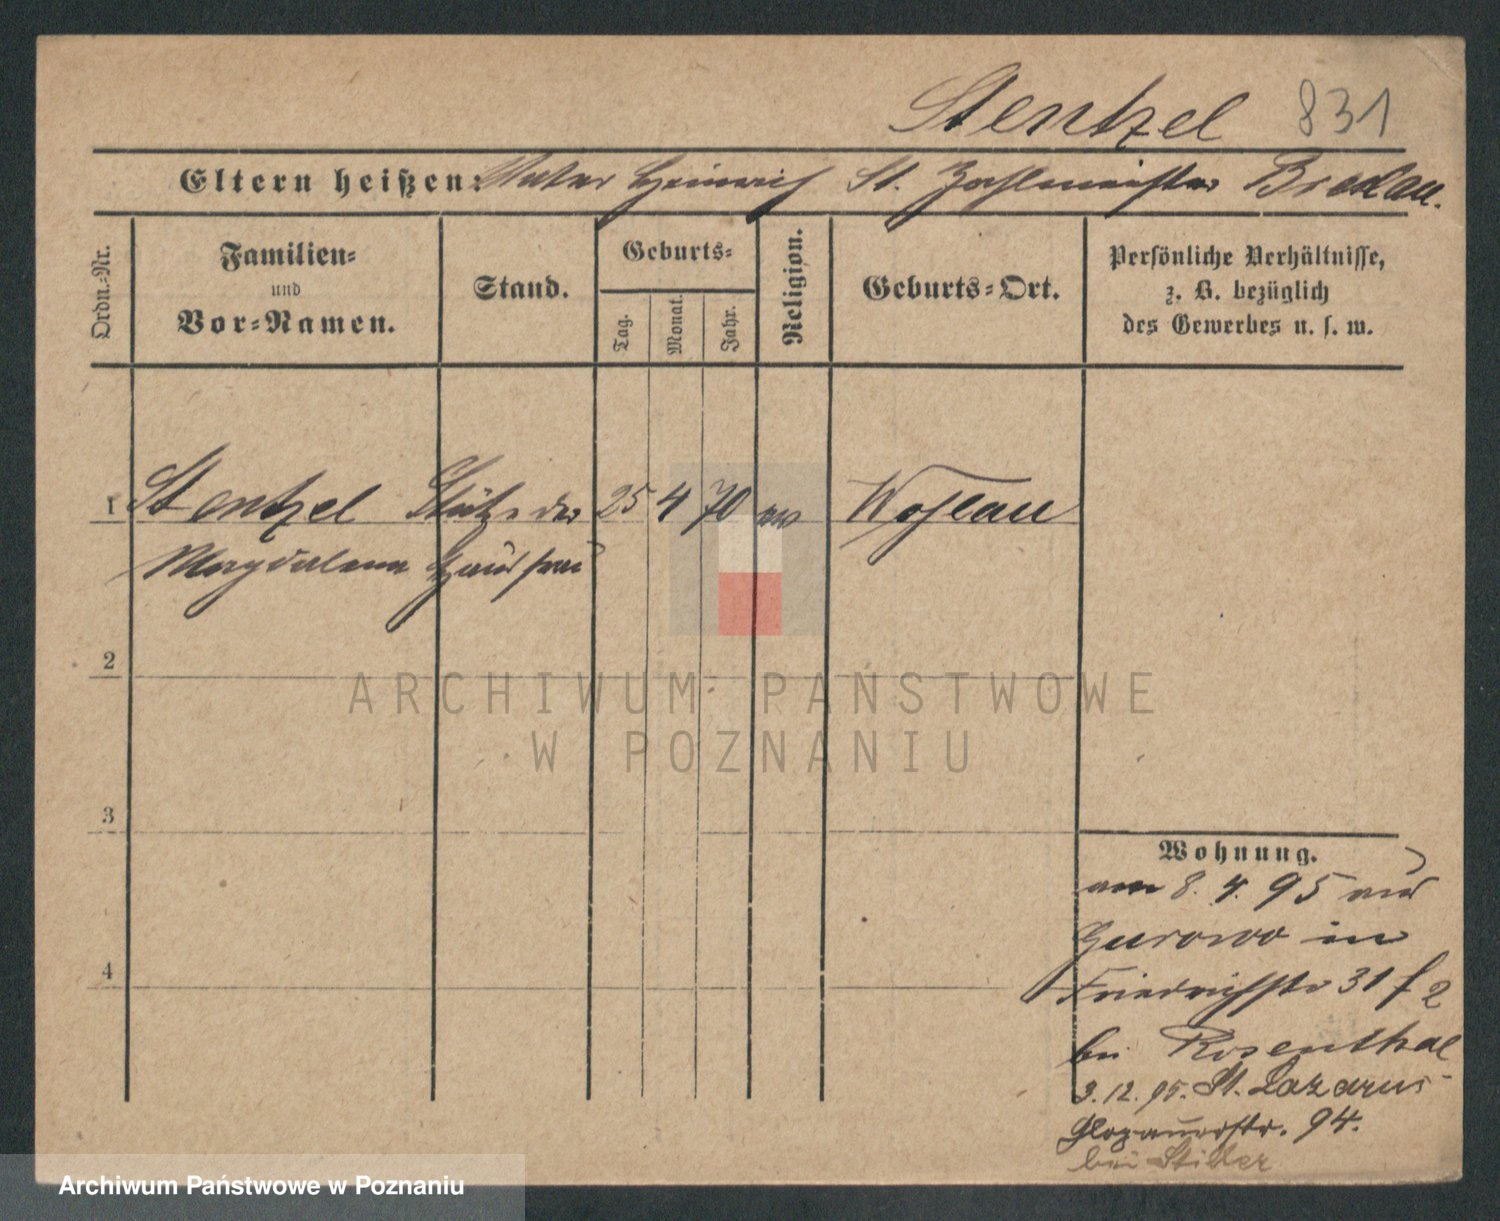 Stentzel 831
Eltern heißen: Vater Heinrich St. Zahlmeister Breslau.
Ordn.-Nr.
Familien-
und
Vor-Namen.
Stand.
Geburts-
Tag.
Monat.
Jahr.
Religion.
Geburts-Ort.
Persönliche Verhältnisse,
z. B. bezüglich
des Gewerbes u. s. w.
1 Stentzel Stütze der 25 4 70 ev Wohlau
Magdalena Hausfrau
2
ARCHIWUM PAŃSTWOWE
W POZNANIU
3
Wohnung.
am 8. 4. 95 aus
Gurowo in
Friedrichstr 31 2
bei Rosenthal
3. 12. 95. St. Lazarus
Glogauerstr. 94.
bei Stiller
4
Archiwum Państwowe w Poznaniu